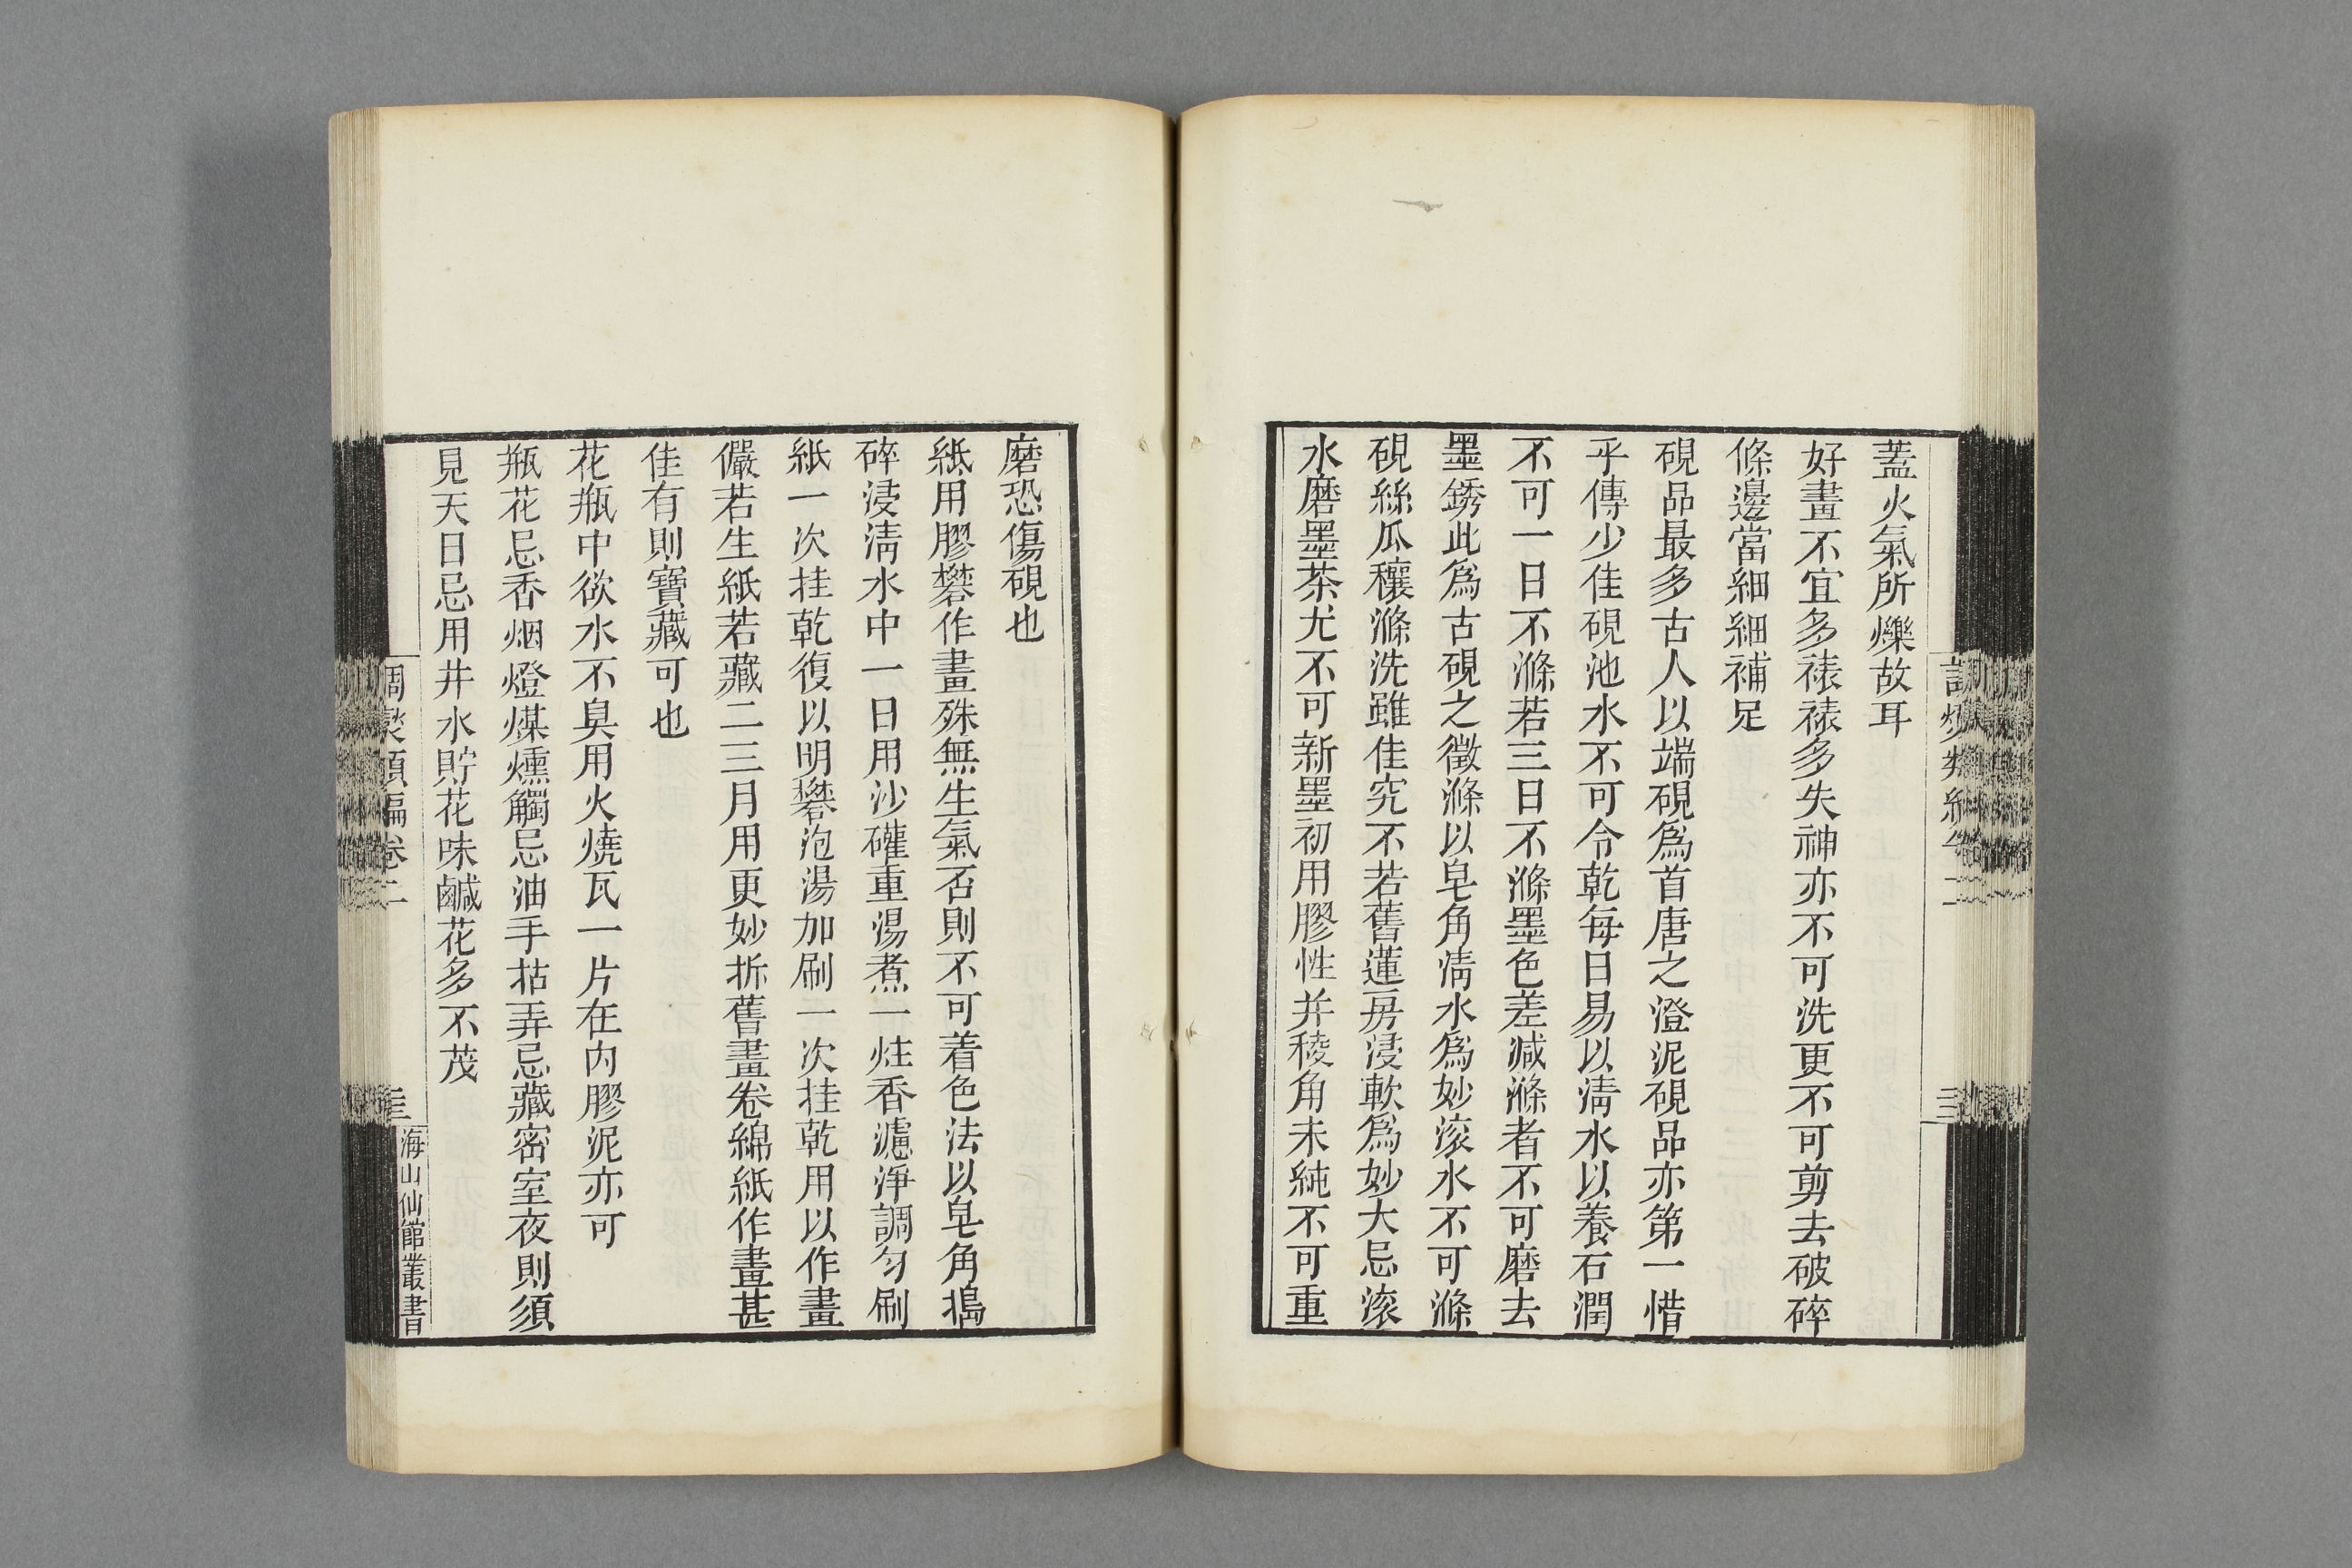 蓋火氣所爍故耳
好畫不宜多裱裱多失神亦不可洗更不可剪去破碎
條邊當細細補足
硯品最多古人以端硯爲首唐之澄泥硯品亦第一惜
乎傳少佳硯池水不可令乾每日易以清水以養石潤
不可一日不滌若三日不滌墨色差減滌者不可磨去
墨銹此爲古硯之徵滌以皂角清水爲妙滚水不可滌
硯絲瓜穰滌洗雖佳究不若舊蓮房浸軟爲妙大忌滚
水磨墨茶尤不可新墨初用膠性并稜角未純不可重
磨恐傷硯也
紙用膠礬作畫殊無生氣否則不可着色法以皂角搗
碎浸清水中一日用沙礶重湯煮一炷香濾淨調匀刷
紙一次挂乾復以明礬泡湯加刷一次挂乾用以作畫
儼若生紙若藏二三月用更妙拆舊畫卷綿紙作畫甚
佳有則寶藏可也
花瓶中欲水不臭用火燒瓦一片在内膠泥亦可
瓶花忌香烟燈煤燻觸忌油手拈弄忌藏密室夜則須
見天日忌用井水貯花味鹹花多不茂
調燮類編卷二
海山仙館叢書